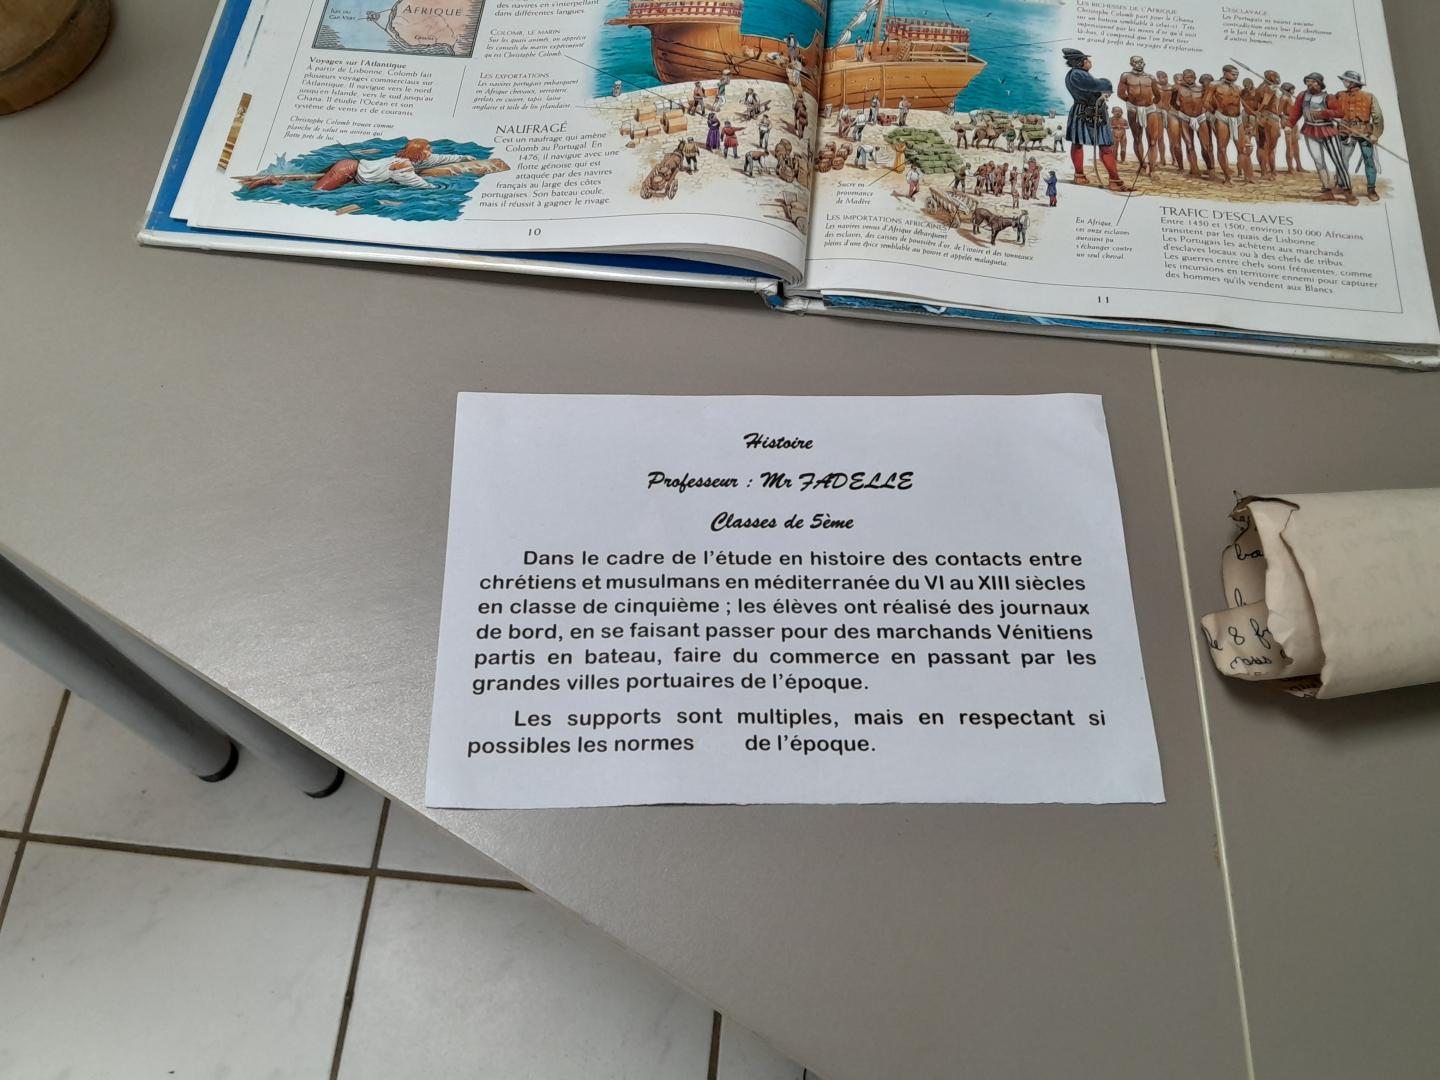 des navires en s'interpellent
dans différentes langues.
ÎLES DU
CAP-VERT
AFRIQUE
GHANA
Voyages sur l'Atlantique
À partir de Lisbonne, Colomb fait
plusieurs voyages commerciaux sur
l'Atlantique. Il navigue vers le nord
jusqu'en Islande, vers le sud jusqu'au
Ghana. Il étudie l'Océan et son
système de vents et de courants.
COLOMB, LE MARIN
Sur les quais animés, on apprécie
les conseils du marin expérimenté
qu'est Christophe Colomb.
LES EXPORTATIONS
Les navires portugais embarquent
en Afrique chevaux, verroterie,
grelots en cuivre, tapis, laine
anglaise et toile de lin irlandaise.
Christophe Colomb trouve comme
planche de salut un aviron qui
flotte près de lui.
NAUFRAGÉ
C'est un naufrage qui amène
Colomb au Portugal. En
1476, il navigue avec une
flotte génoise qui est
attaquée par des navires
français au large des côtes
portugaises. Son bateau coule,
mais il réussit à gagner le rivage.
10
LES RICHESSES DE L'AFRIQUE
Christophe Colomb part pour le Ghana
sur un bateau semblable à celui-ci. Très
impressionné par les mines d'or qu'il voit
là-bas, il comprend que l'on peut tirer
un grand profit des voyages d'exploration.
L'ESCLAVAGE
Les Portugais ne voient aucune
contradiction entre leur foi chrétienne
et le fait de réduire en esclavage
d'autres hommes.
Sucre en
provenance
de Madère.
LES IMPORTATIONS AFRICAINES
Les navires venus d'Afrique débarquent
des esclaves, des caisses de poussière d'or, de l'ivoire et des tonneaux
pleins d'une épice semblable au poivre et appelée malagueta.
En Afrique,
ces onze esclaves
auraient pu
s'échanger contre
un seul cheval.
TRAFIC D'ESCLAVES
Entre 1450 et 1500, environ 150 000 Africains
transitent par les quais de Lisbonne.
Les Portugais les achètent aux marchands
d'esclaves locaux ou à des chefs de tribus.
Les guerres entre chefs sont fréquentes, comme
les incursions en territoire ennemi pour capturer
des hommes qu'ils vendent aux Blancs.
11
Histoire
Professeur : Mr FADELLE
Classes de 5ème
Dans le cadre de l'étude en histoire des contacts entre
chrétiens et musulmans en méditerranée du VI au XIII siècles
en classe de cinquième ; les élèves ont réalisé des journaux
de bord, en se faisant passer pour des marchands Vénitiens
partis en bateau, faire du commerce en passant par les
grandes villes portuaires de l'époque.
Les supports sont multiples, mais en respectant si
possibles les normes de l'époque.
le 8